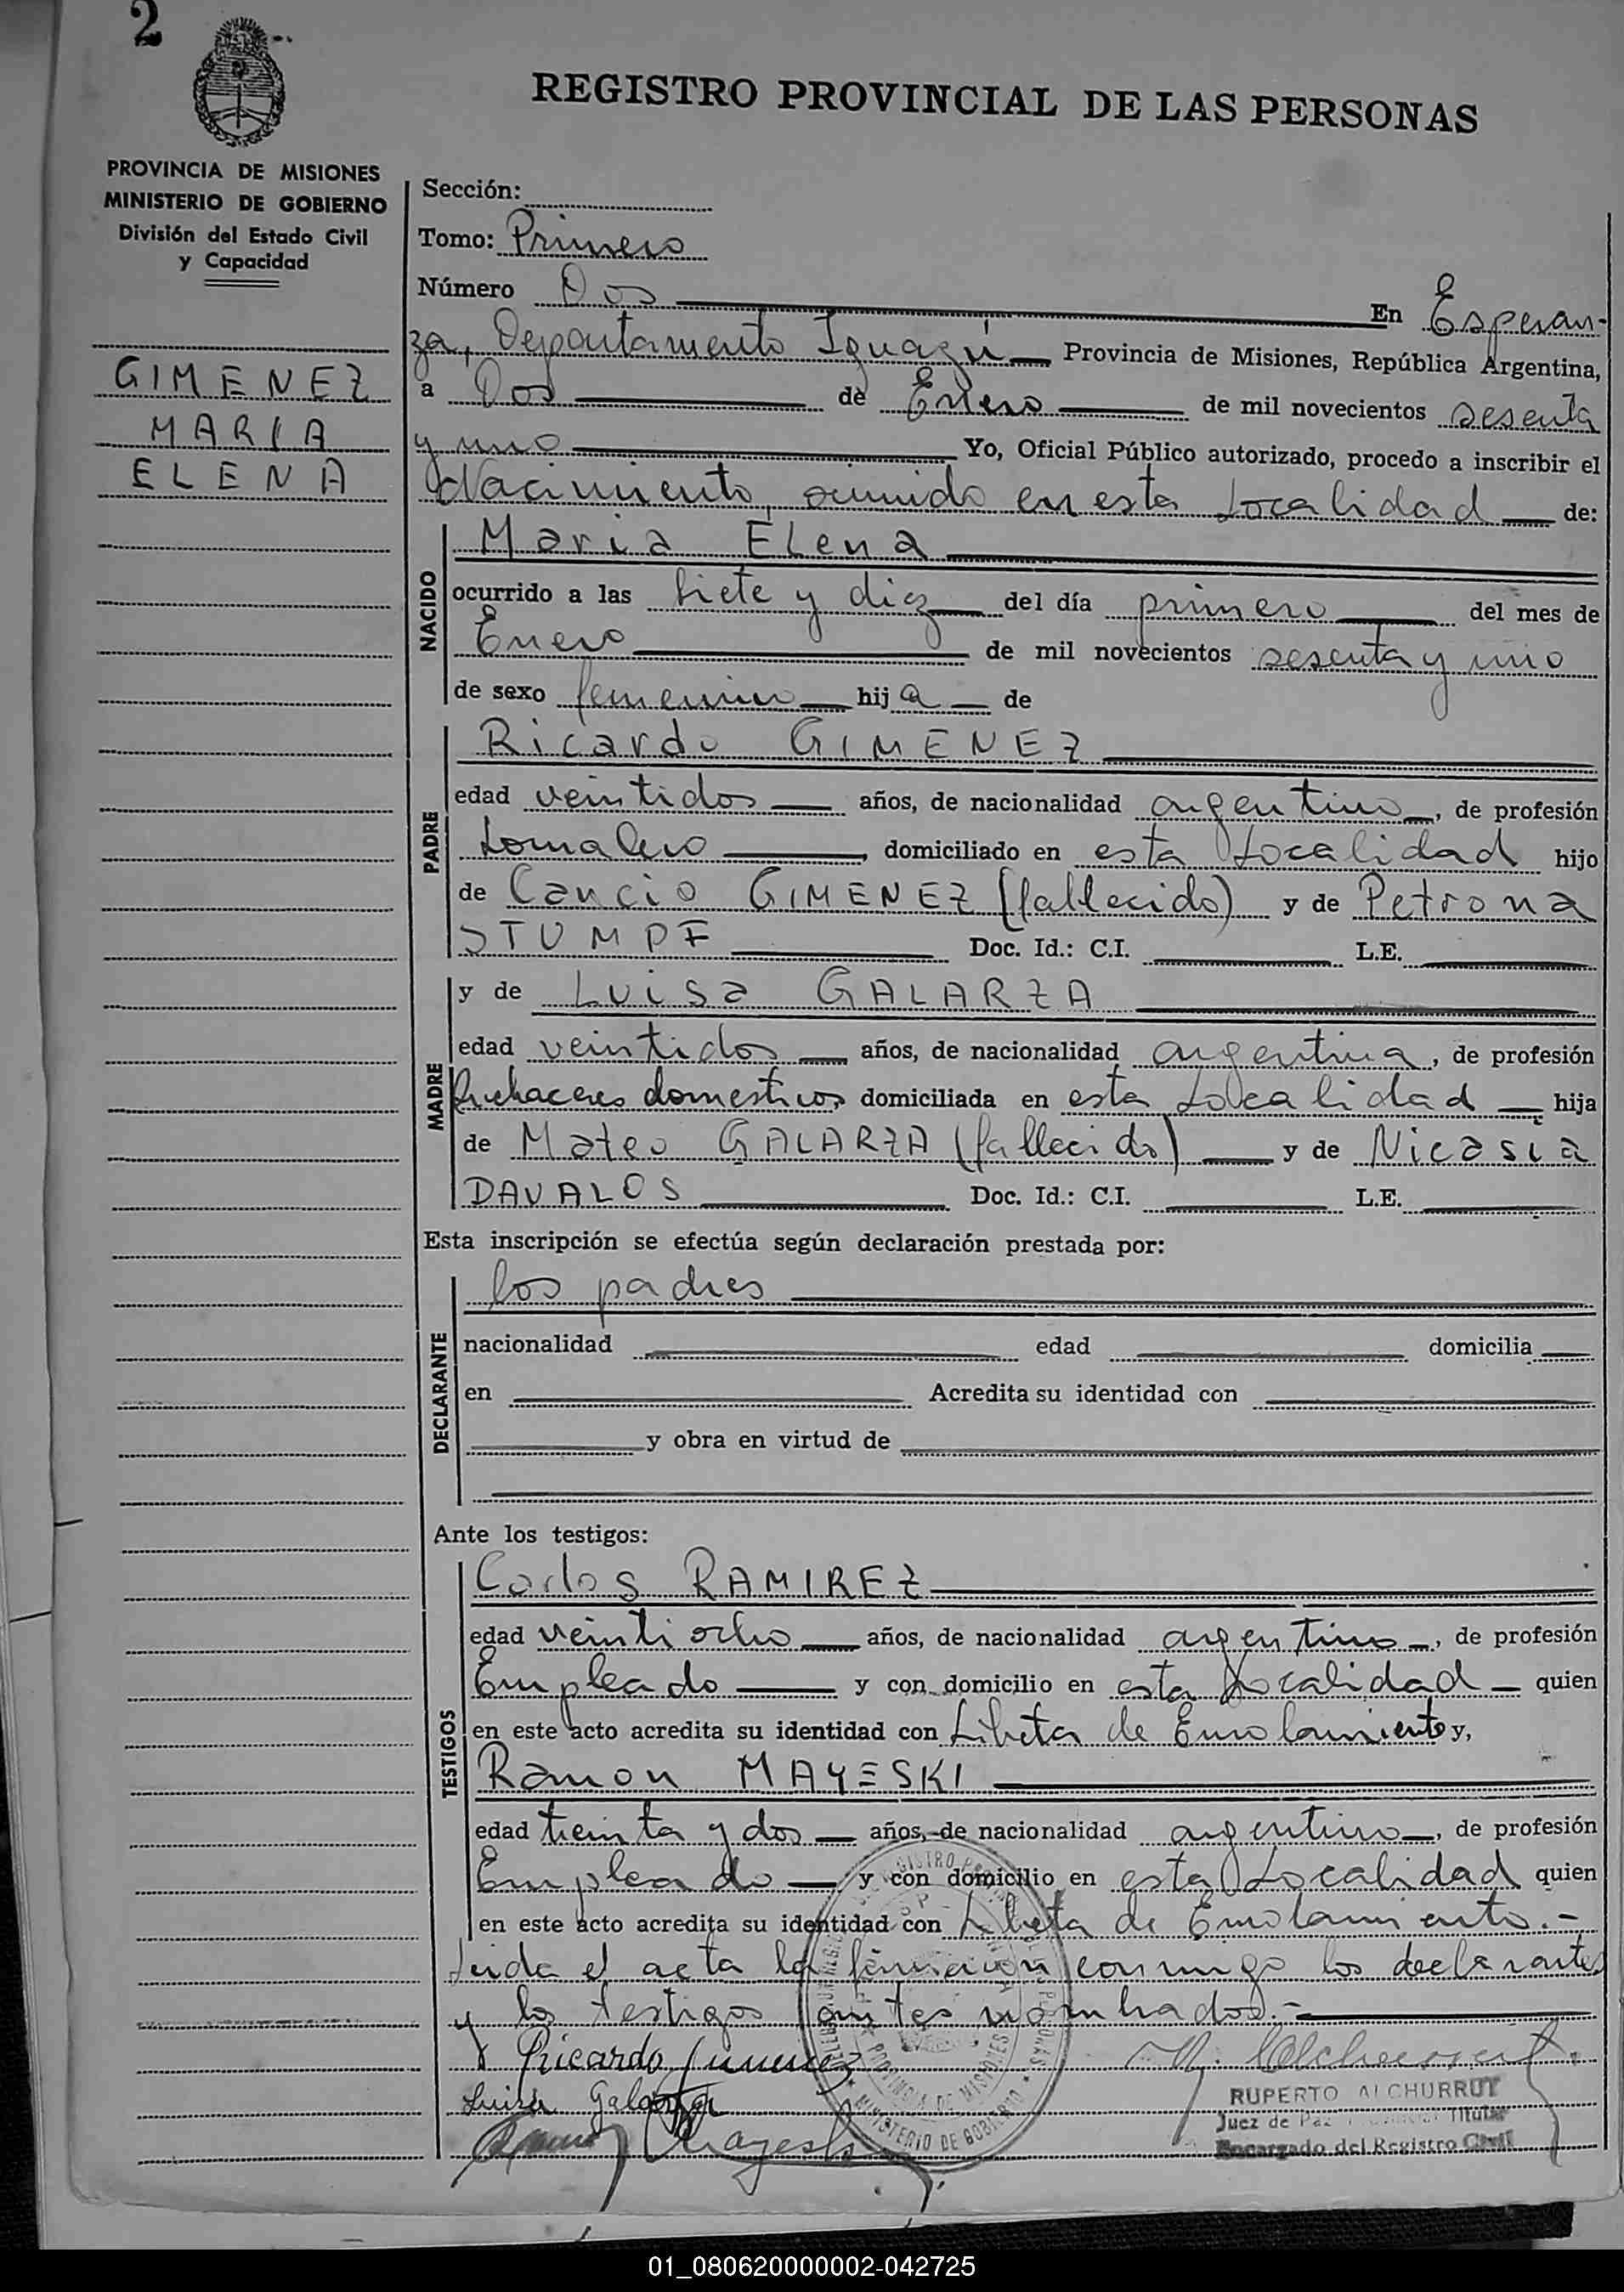 2
REGISTRO PROVINCIAL DE LAS PERSONAS
PROVINCIA DE MISIONES
MINISTERIO DE GOBIERNO
División del Estado Civil
y Capacidad
GIMENEZ
MARIA
ELENA
Sección:
Tomo: Primero
Número Dos En Esperan-
za, Departamento Iguazú Provincia de Misiones, República Argentina,
a Dos de Enero de mil novecientos sesenta
y uno Yo, Oficial Público autorizado, procedo a inscribir el
Nacimiento, ocurrido en esta Localidad de:
NACIDO
Maria Elena
ocurrido a las siete y diez del día primero del mes de
Enero de mil novecientos sesenta y uno
de sexo femenino hija de
PADRE
Ricardo GIMENEZ
edad veintidos años, de nacionalidad argentino, de profesión
Jornalero, domiciliado en esta Localidad hijo
de Cancio GIMENEZ (fallecido) y de Petrona
STUMPF Doc. Id.: C.I. L.E.
MADRE
y de Luisa GALARZA
edad veintidos años, de nacionalidad argentina, de profesión
Quehaceres domesticos domiciliada en esta Localidad hija
de Mateo GALARZA (fallecido) y de Nicasia
DAVALOS Doc. Id.: C.I. L.E.
Esta inscripción se efectúa según declaración prestada por:
DECLARANTE
los padres
nacionalidad edad domicilia
en Acredita su identidad con
y obra en virtud de
Ante los testigos:
TESTIGOS
Carlos RAMIREZ
edad veintiocho años, de nacionalidad argentino, de profesión
Empleado y con domicilio en esta Localidad quien
en este acto acredita su identidad con Libreta de Enrolamiento y,
Ramon MAYESKI
edad treinta y dos años, de nacionalidad argentino, de profesión
Empleado y con domicilio en esta Localidad quien
en este acto acredita su identidad con Libreta de Enrolamiento.-
Leida el acta la firmaron conmigo los declarantes
y los testigos antes nombrados.-
Ricardo Gimenez
Luisa Galarza
RUPERTO ALCHURRUT
Juez de Paz Titular
Encargado del Registro Civil
PROVINCIA DE MISIONES
MINISTERIO DE GOBIERNO
01_080620000002-042725